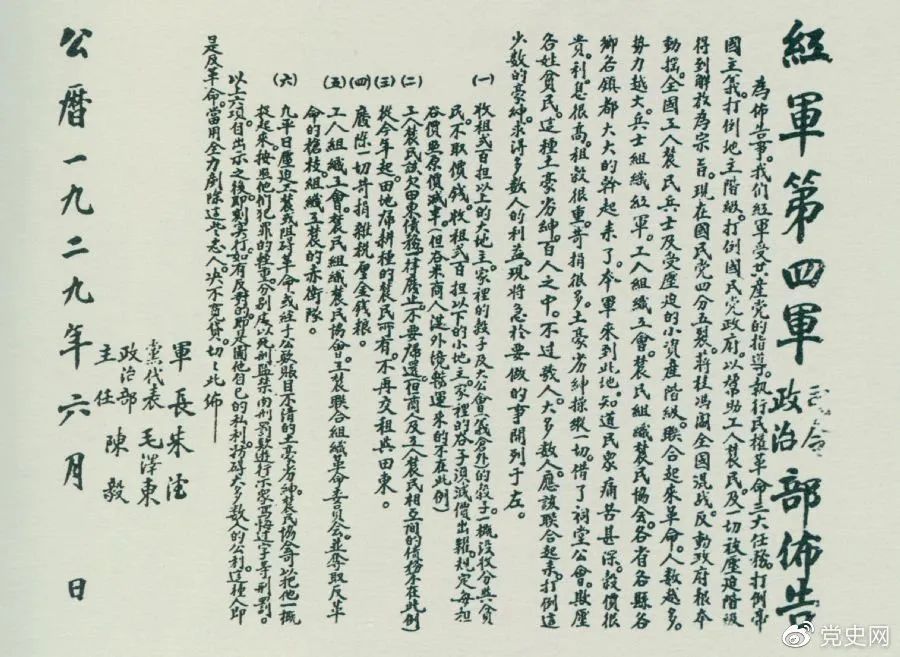 紅軍第四軍司令部政治部佈告
為佈告事。我們紅軍受共產党的指導。執行民權革命三大任務。打倒帝
國主義。打倒地主階級。打倒國民党政府。以幫助工人農民及一切被壓迫階級
得到解放為宗旨。現在國民党四分五裂。蔣桂馮閻全國混战。反動政府根本
動搖。全國工人農民兵士及受壓迫的小資產階級。联合起來革命。人數越多。
势力越大。兵士組織紅軍。工人組織工會。農民組織農民協会。各省各縣各
鄉各鎮都大大的幹起來了。本軍來到此地。知道民眾痛苦甚深。穀價很
貴。利息很高。租穀很重。苛捐很多。土豪劣紳操縱一切。借了祠堂公會。欺壓
各姓貧民。這種土豪劣紳。百人之中。不过數人。大多數人。應該联合起來。打倒這
少数的豪紳。求得多數人的利益。現将急於要做的事開列于左。
(一)收租弍百担以上的大地主。家裡的穀子及大公會(義倉外)的穀子。一概沒收分與貧
民。不取價钱。收租弍百担以下的小地主。家裡的谷子須減價出糶。規定每担
谷價照原價減半。(但谷米商人從外境販運來的不在此例)
(二)工人農民該欠田東債務。一律廢止。不要歸還。(但商人及工人農民相互間的債務不在此例)
(三)從今年起。田地歸耕種的農民所有。不再交租與田東。
(四)廢除一切苛捐雜稅厘金錢粮。
(五)工人組織工會。農民組織農民協會。工農联合組織革命委員会。並奪取反革
命的槍枝。組織工農的赤衛隊。
(六)凡平日壓迫工農或阻碍革命。或經手公欵賬目不清的土豪劣紳。農民協會可以把他一概
捉起來。按照他們犯罪的輕重。分别處以死刑監禁肉刑罰欵遊行示衆写悔过字等刑罰。
以上六項自出示之後。即刻实行。如有反對的。即是圖他自己的私利。防碍大多数人的公利。這種人即
是反革命。當用全力剷除這些恶人。决不寬貸。切切此佈
軍長朱德
黨代表毛澤東
政治部主任陳毅
公曆一九二九年六月 日
党史网